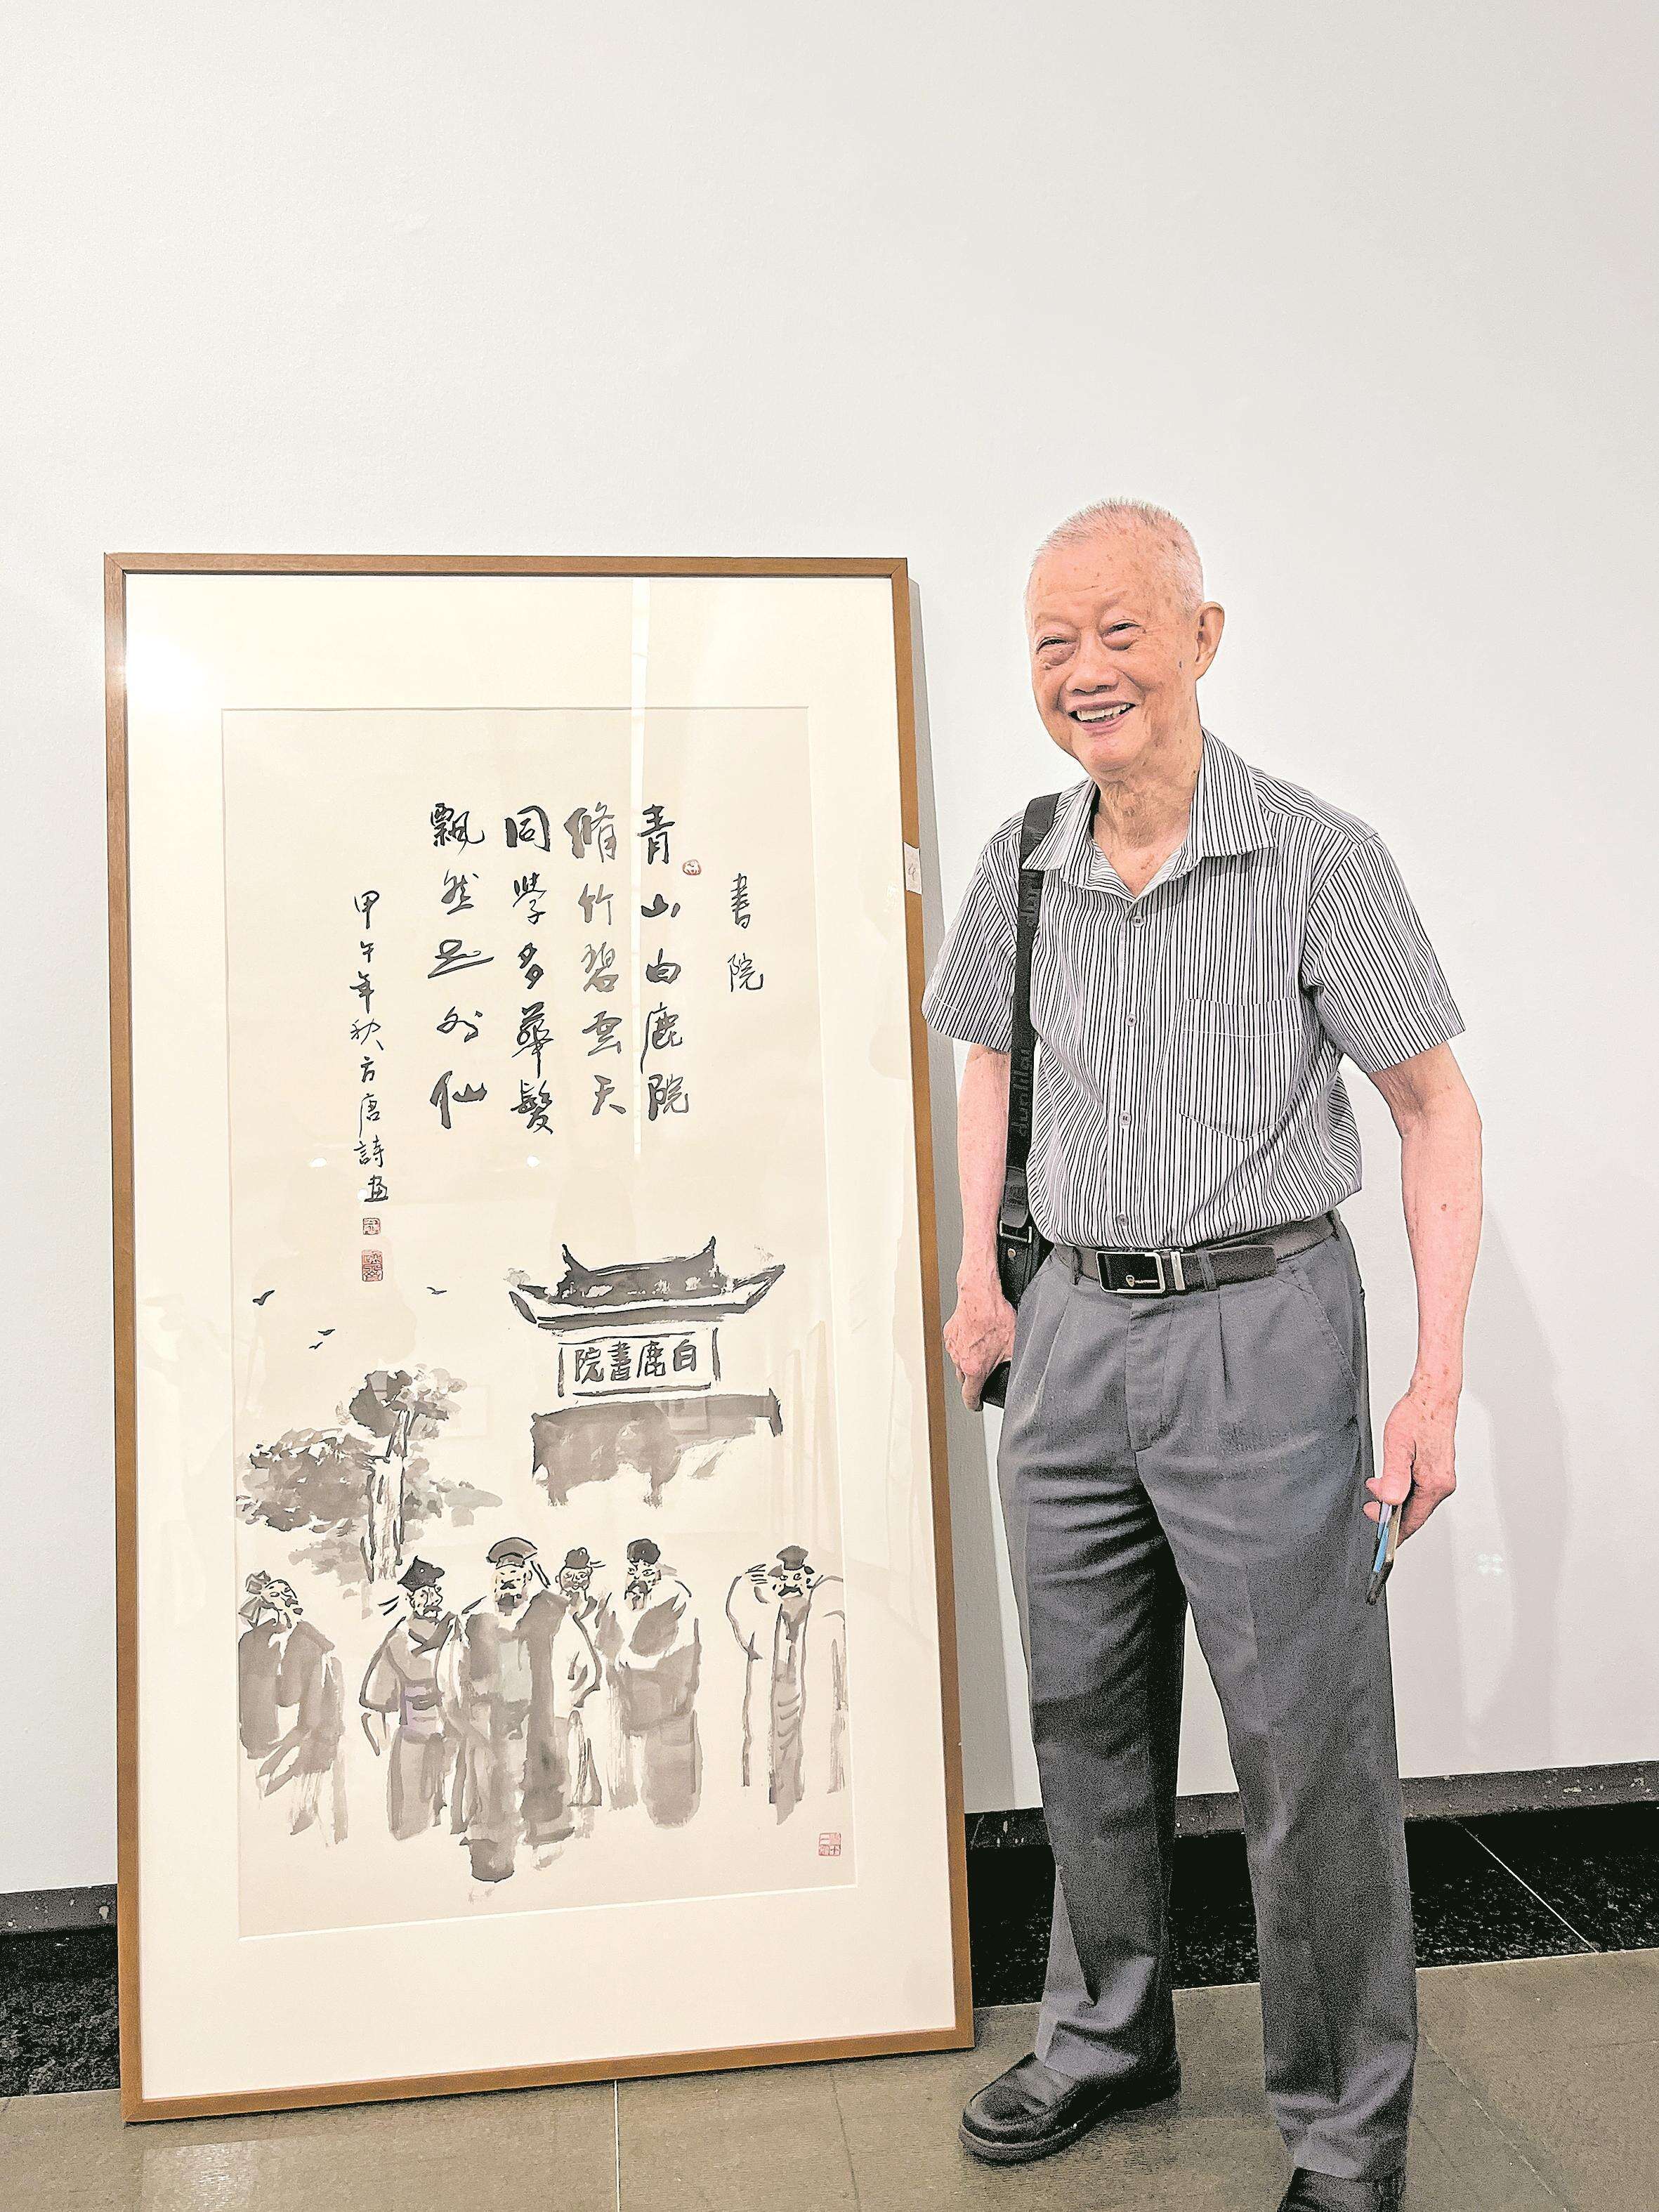 書院
青山白鹿院
脩竹碧雲天
同學多華髮
飄然世外仙
甲午年秋方唐詩畫
院書鹿白
dunhill